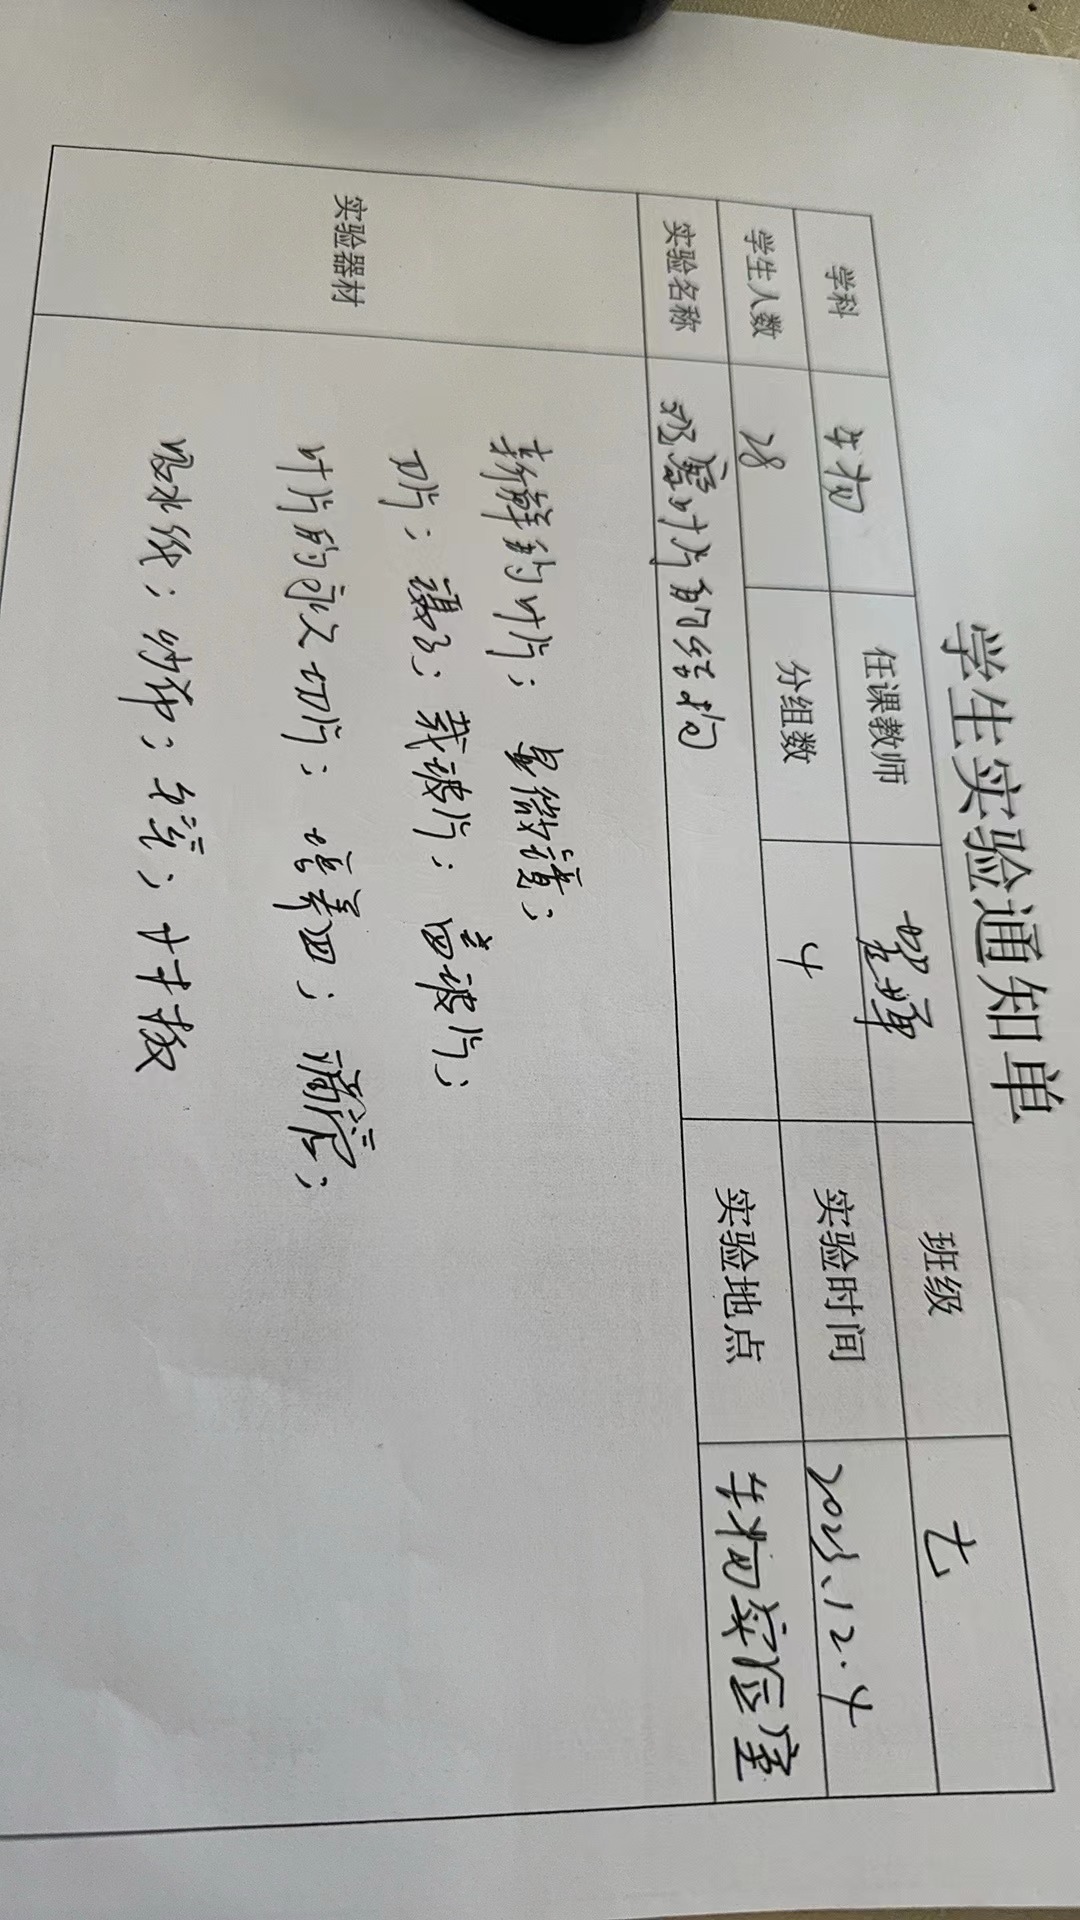 学生实验通知单
学科 生物 任课教师 班级 七
学生人数 28 分组数 4 实验时间 2023.12.4
实验名称 观察叶片的结构 实验地点 生物实验室
实验器材
新鲜的叶片; 显微镜;
刀片; 镊子; 载玻片; 盖玻片;
叶片的永久切片; 培养皿; 滴管;
吸水纸; 纱布; 毛笔; 小木板